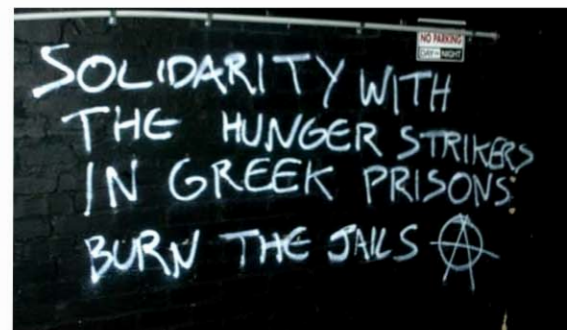 NO PARKING
DAY OR NIGHT
SOLIDARITY WITH
THE HUNGER STRIKERS
IN GREEK PRISONS.
BURN THE JAILS Ⓐ